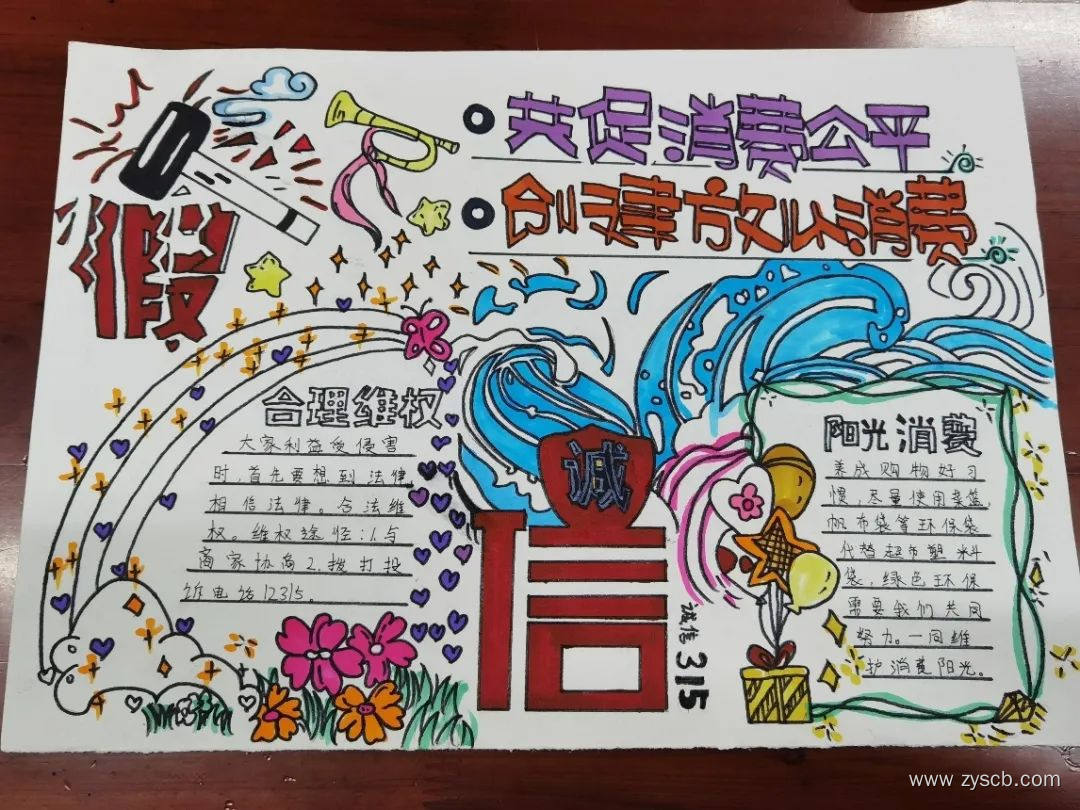 共
公平
假
合理维权
大家利益受侵害
时,首先要想到法律,
相信法律。合法维
权。维权途径:1.与
商家协商2.拨打投
诉电话12315。
诚
信
诚信315
阳光消费
养成购物好习
惯,尽量使用菜篮,
帆布袋等环保袋
代替超市塑料
袋,绿色环保
需要我们共同
努力。一同维
护消费阳光。
www.zyscb.com